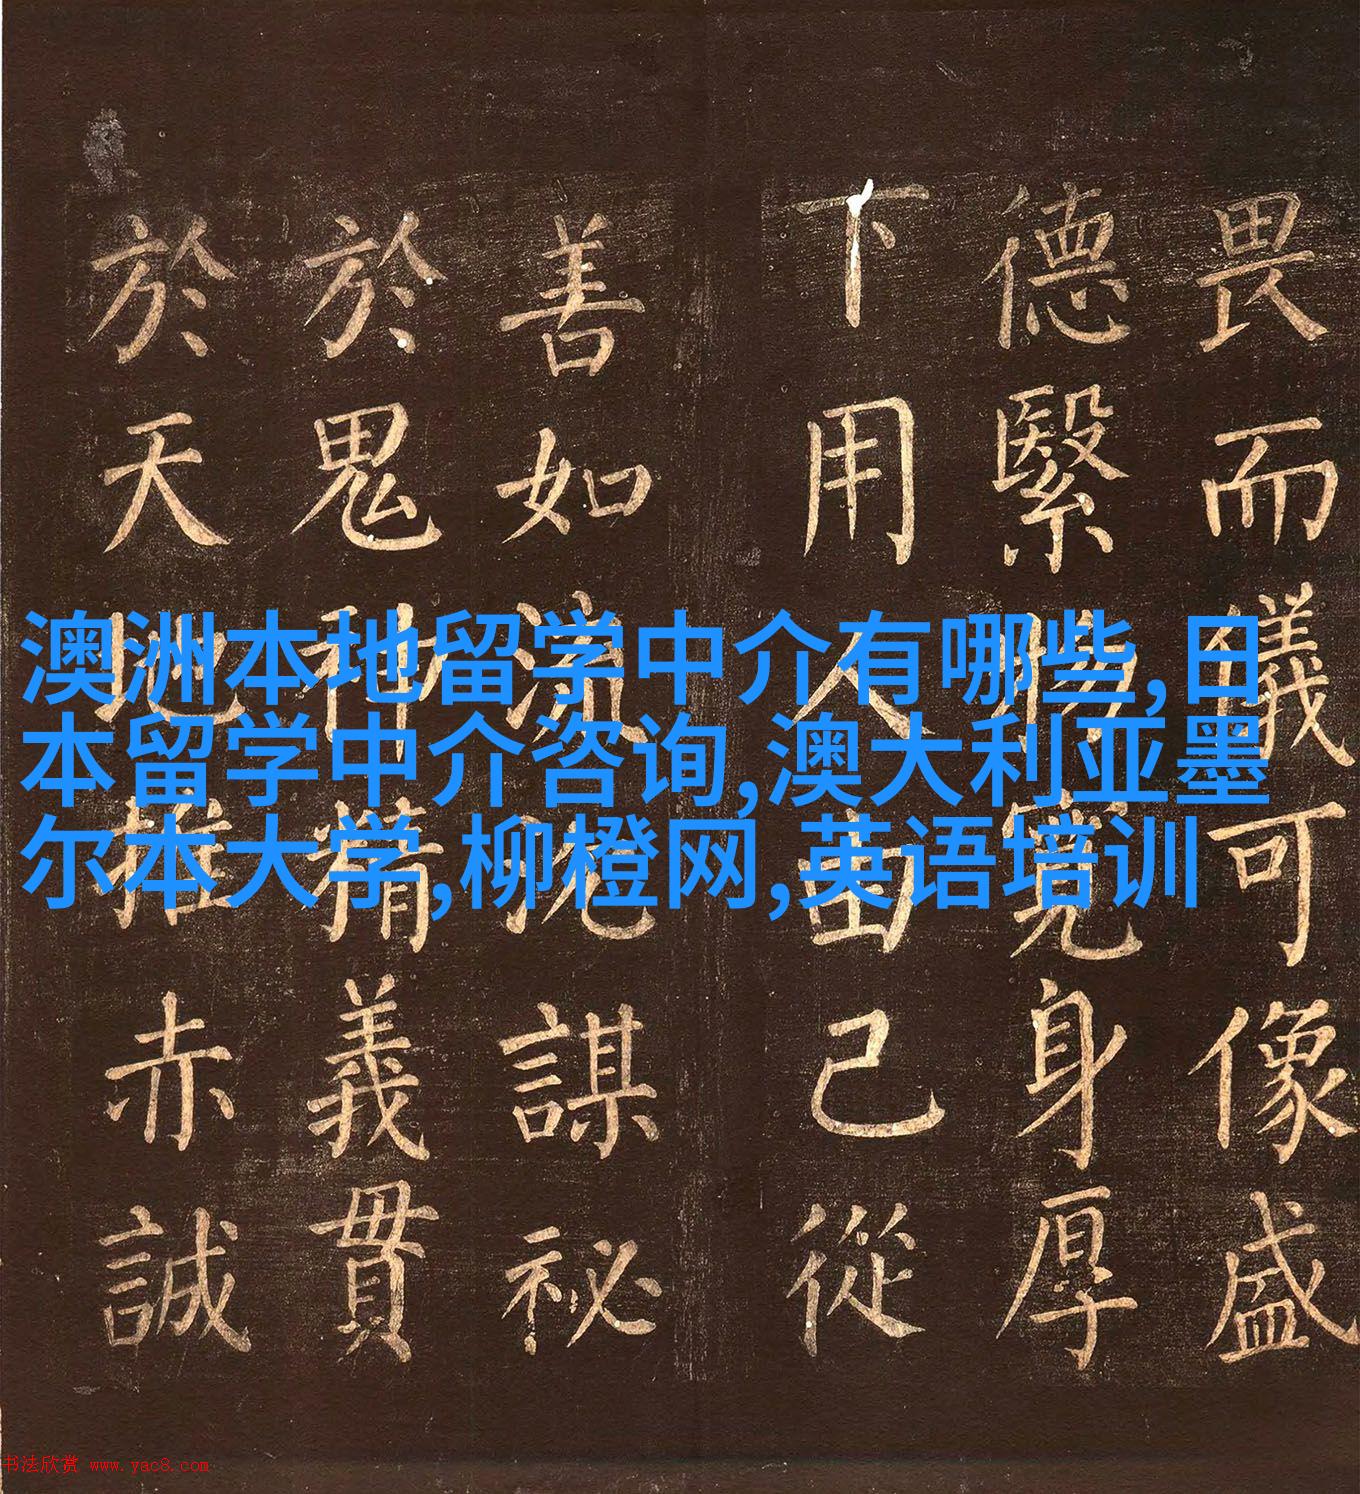 畏而儀可像盛
德繄身厚
下用人由己從
善如流沈謀祕
於鬼神精義貫
於天地推赤誠
澳洲本地留学中介有哪些,日
本留学中介咨询,澳大利亚墨
尔本大学,柳橙网,英语培训
书法欣赏 www.yac8.com